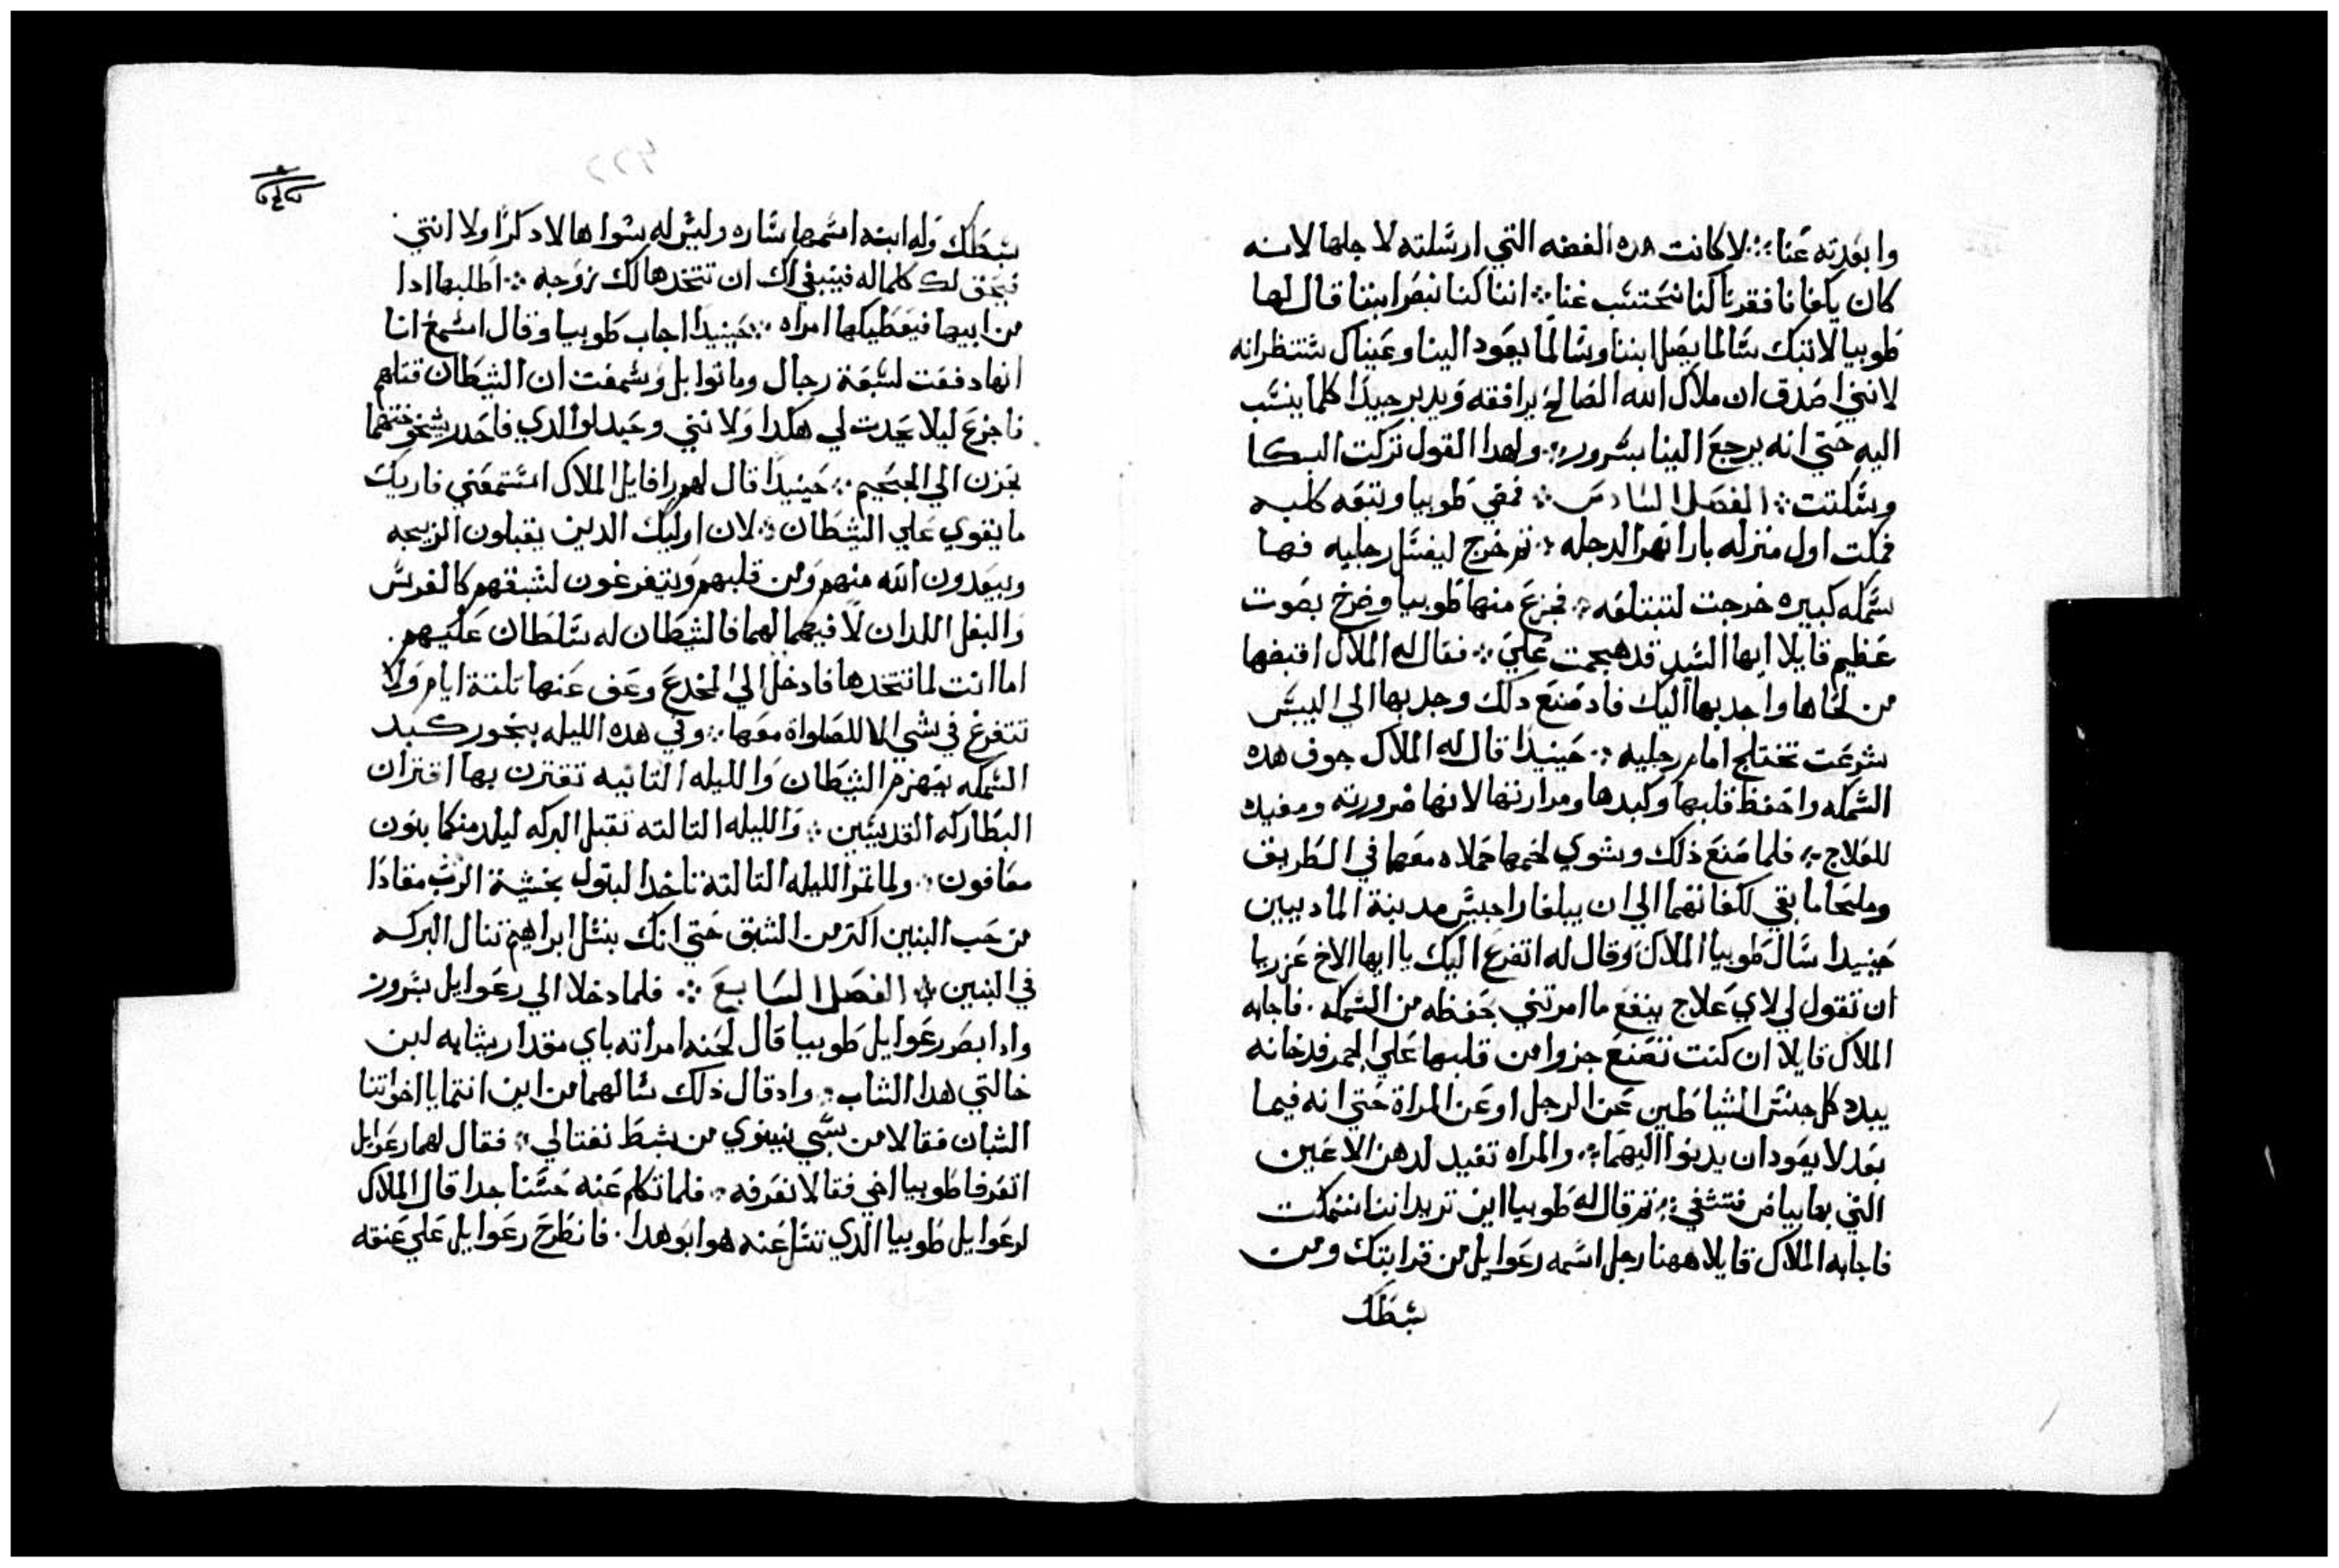 وابعدته عنا ؞ لا كانت هده الفضه التي ارسلته لاجلها لانه
كان يكفانا فقرنا لكنا نحتسب غنا ؞ اننا كنا نبصر ابننا قال لها
طوبيا لا تبك سالما يصل ابننا وسالما يعود الينا وعيناك ستنظرانه
لانني اصدق ان ملاك الله الصالح يرافقه ويدبر جيدا كلما ينسب
اليه حتي انه يرجع الينا بسرور ؞ ولهدا القول تركت البكا
وسكتت ؞ الفصل السادس ؞ فمضي طوبيا وتبعه كلبه
فمكت اول منزله بازا نهر الدجله ؞ تم خرج ليغسل رجليه فها
سمكه كبيره خرجت لتبتلعه ؞ فجزع منها طوبيا وصرخ بصوت
عظيم قايلا ايها السيد قد هجمت علي ؞ فقال له الملاك اقبضها
من لخاها واجدبها اليك فاد صنع دلك وجدبها الي اليبس
شرعت تختلج امام رجليه ؞ حينيدا قال له الملاك جوف هده
السمكه واحفظ قلبها وكبدها ومرارتها لانها ضروريه ومفيده
للعلاج ؞ فلما صنع ذلك وشوي لحمها حملاه معهما في الطريق
وملحا ما بقي لكفاتهما الي ان يبلغا راجيس مدينة الماديين
حينيدا سال طوبيا الملاك وقال له اتضرع اليك يا ايها الاخ عزريا
ان تقول لي لاي علاج ينفع ما امرتني بحفظه من السمكه . فاجابه
الملاك قايلا ان كنت تصنع جزوا من قلبها علي الجمر فدخانه
يبدد كل جنس الشياطين عن الرجل او عن المراة حتي انه فيما
بعد لا يعود ان يدنوا اليهما ؞ والمراه تفيد لدهن الاعين
التي بها بياض فتشفي ؞ تم قال له طوبيا اين تريد اننا نمكت
فاجابه الملاك قايلا ههنا رجل اسمه رعوايل من قرابتك ومن
سبطك
سبطك وله ابنه اسمها ساره وليس له سواها لا دكرا ولا انتي
فيحق لك كلما له فينبغي لك ان تتخدها لك زوجه ؞ اطلبها ادا
من ابيها فيعطيكها امراه ؞ حينيدا اجاب طوبيا وقال اسمع انا
انها دفعت لسبعة رجال وماتوا بل وسمعت ان الشيطان قتلهم
فاجزع ليلا يحدت لي هكدا ولانني وحيد لوالدي فاحدر شيخوختهما
بحزن الي الجحيم ؞ حينيدا قال لهم رافايل الملاك استمعني فاريك
ما يقوي علي الشيطان ؞ لان اوليك الدين يقبلون الزيجه
ويبعدون الله منهم ومن قلبهم ويتفرغون لشبقهم كالفرس
والبغل اللدان لا فيهما لهما فالشيطان له سلطان عليهم .
اما انت لما تتخدها فادخل الي المخدع وعف عنها تلتة ايام ولا
تتفرغ في شي الا للصلواة معها ؞ وفي هده الليله بنجور كبد
السمكه يهزم الشيطان والليله التانيه تقترن بها اقتران
البطاركه القديسين ؞ والليله التالته تقبل البركه ليلد منكما بنون
معافون ؞ ولما تمر الليله التالتة تاخد البتول بخشية الرب مقادا
من حب البنين اكتر من الشبق حتي انك بنسل ابراهيم تنال البركه
في البنين ؞ الفصل السابع ؞ فلما دخلا الي رعوايل بسرور
وادا بصر رعوايل طوبيا قال لحنه امراته باي مقدار يشابه لبن
خالتي هدا الشاب ؞ واد قال ذلك سالهما من اين انتما يا اخوتنا
الشبان فقالا من سبي نينوي من سبط نفتالي ؞ فقال لهما رعوايل
اتعرفا طوبيا اخي فقالا نعرفه ؞ فلما تكلم عنه حسنا جدا قال الملاك
لرعوايل طوبيا الدي تسل عنه هو ابو هدا . فانطرح رعوايل علي عنقه